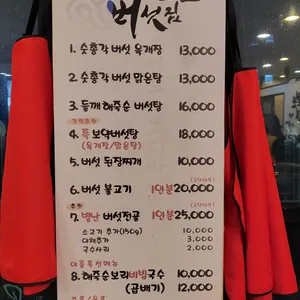 버섯집
1. 숫총각 버섯 육개장 13,000
2. 숫총각 버섯 맑은탕 13,000
3. 들깨 해죽순 버섯탕 16,000
4. 특 보약버섯탕 18,000
(육개장/맑은탕)
5. 버섯 된장찌개 10,000
6. 버섯 불고기 1인분 20,000
추천
7. 별난 버섯전골 1인분 25,000
소고기 추가 (150g) 10,000
야채추가 3,000
국수사리 2,000
여름특선메뉴
8. 해죽순보리비빔국수 10,000
(곱배기) 12,000